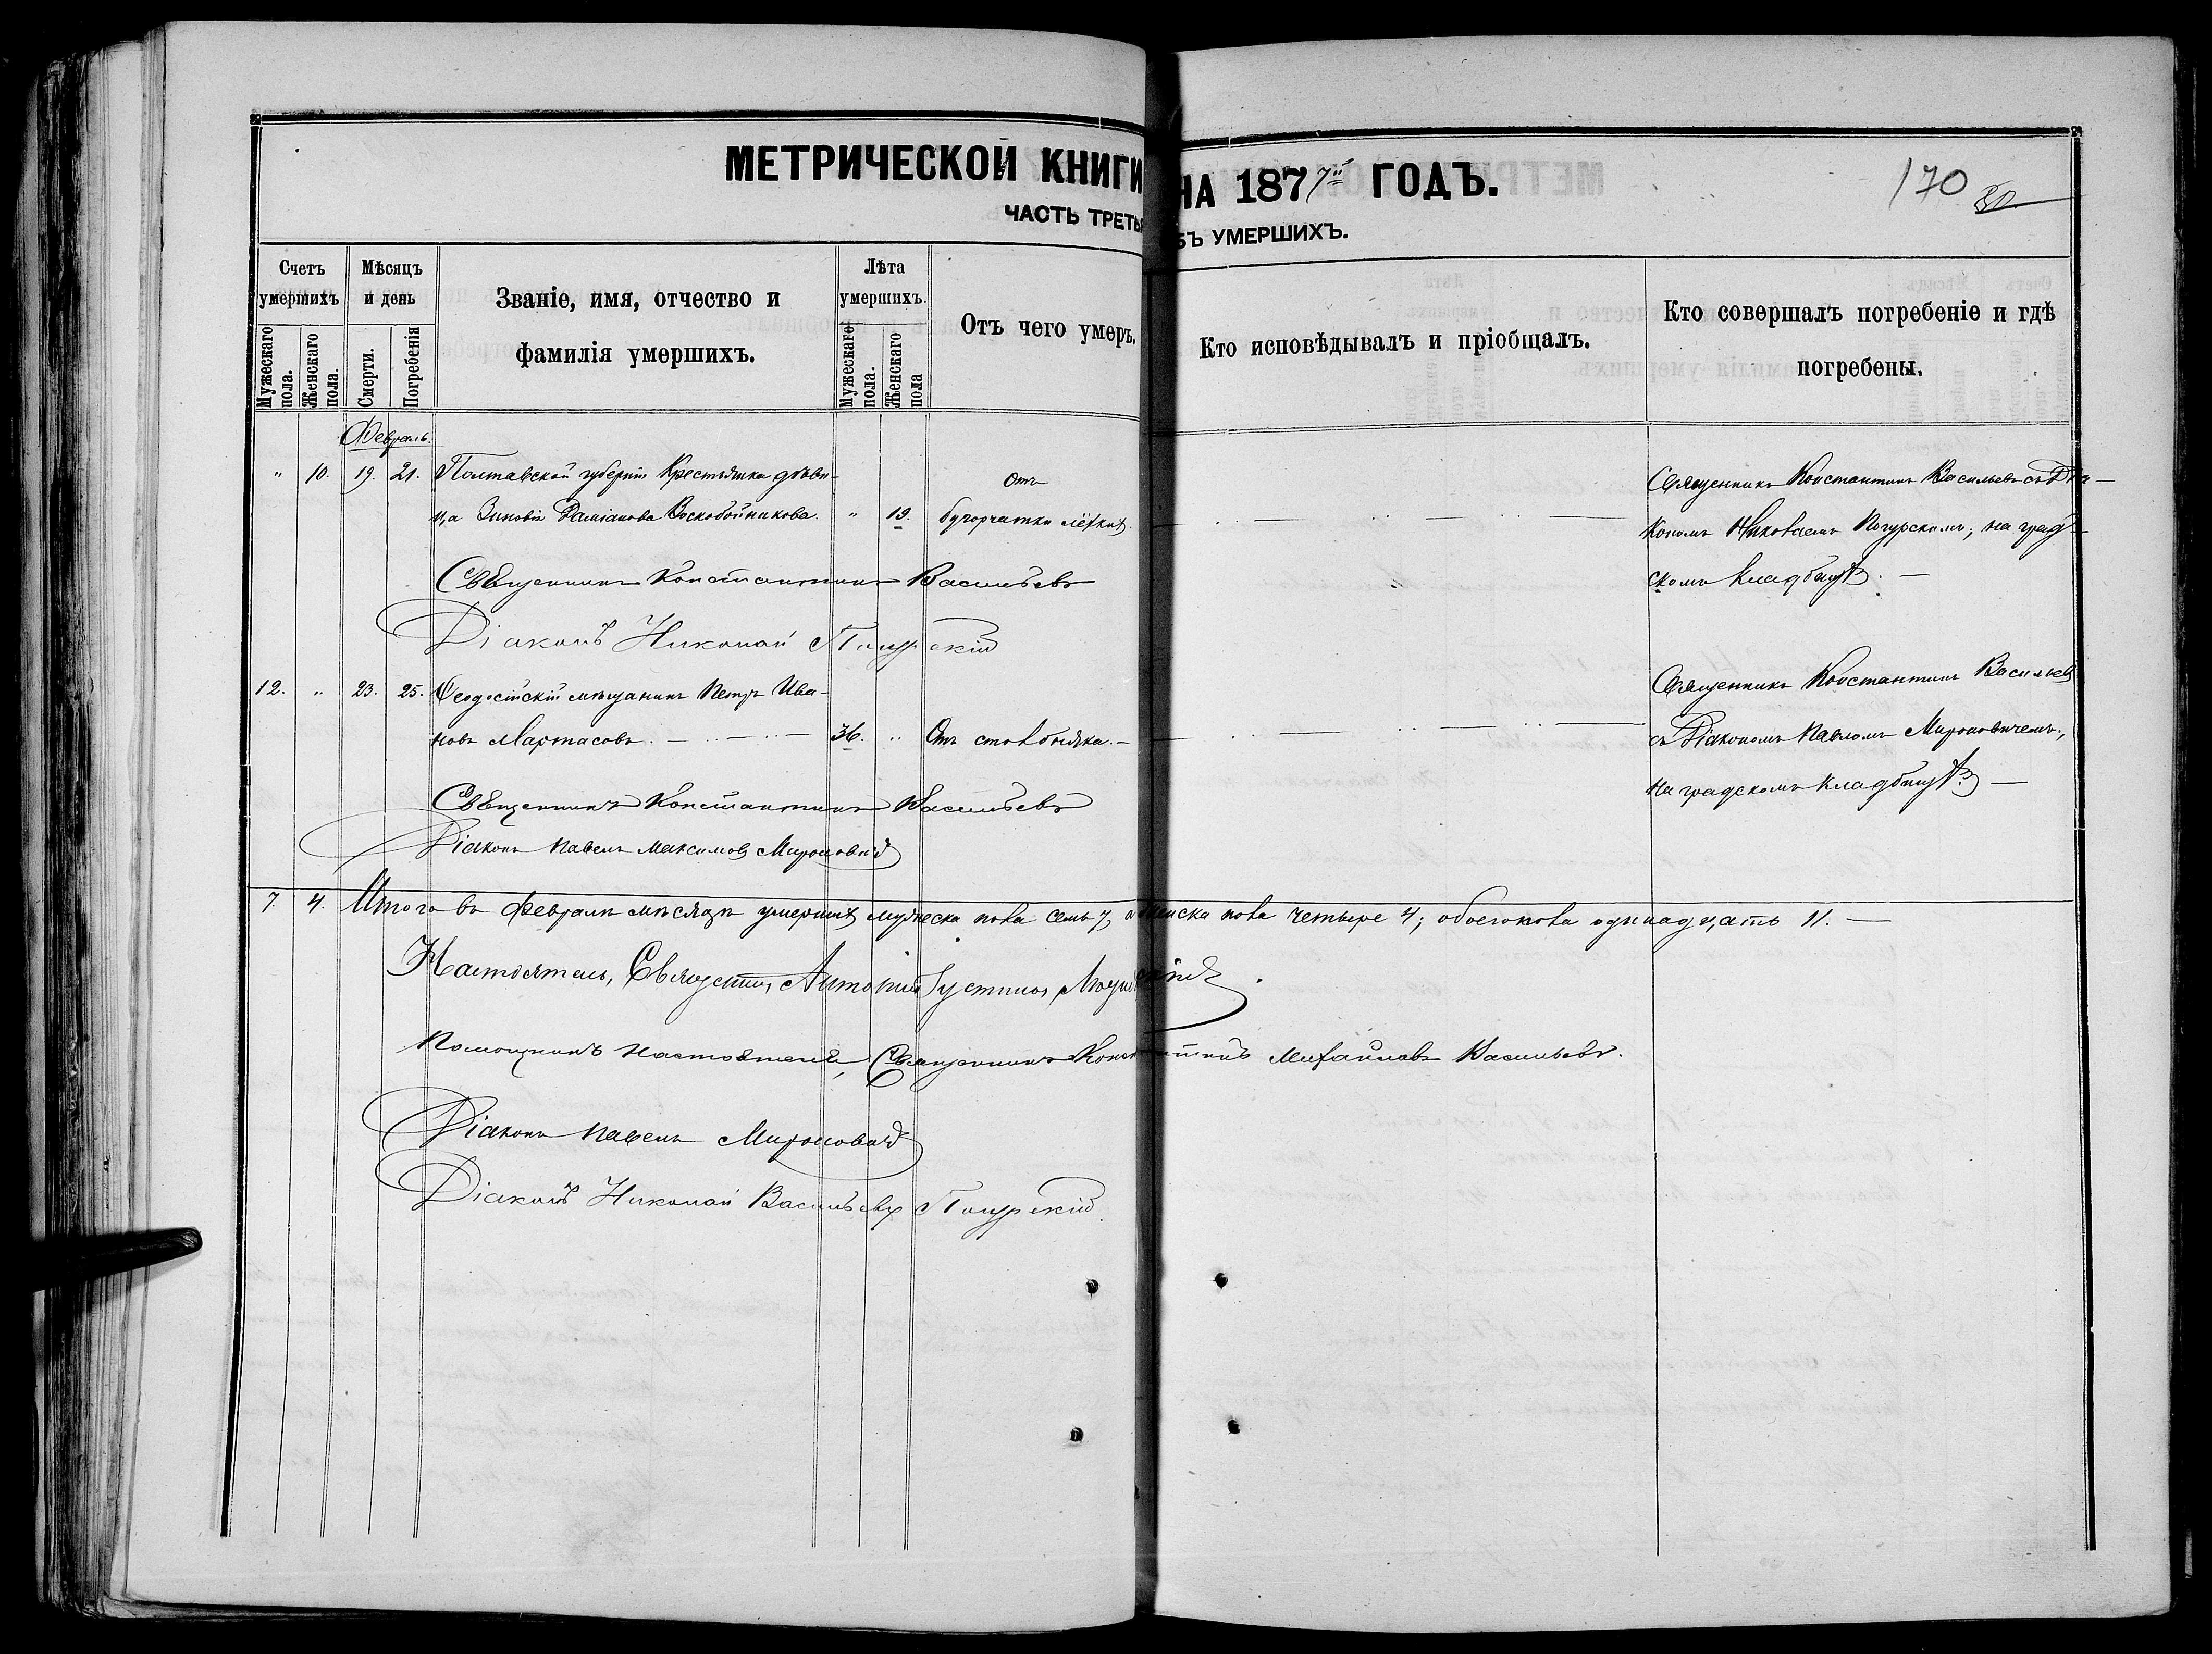 МЕТРИЧЕСКОЙ КНИГИ НА 1877й ГОДЪ.
170
ЧАСТЬ ТРЕТЬ БЪ УМЕРШИХЪ.
Счетъ умершихъ
Мужескаго пола.
Женскаго пола.
Мѣсяцъ и день
Смерти.
Погребенія
Званіе, имя, отчество и фамилія умершихъ.
Лѣта умершихъ.
Мужескаго пола.
Женскаго пола
Отъ чего умеръ.
Кто исповѣдывалъ и пріобщалъ.
Кто совершалъ погребеніе и гдѣ погребены.
Февраль.
" 10. 19. 21. Полтавской губерніи Крестьянка дѣви-
ца Зиновія Даміанова Воскобойникова. " 19.
Отъ
бугорчатки лёгкихъ
Священникъ Константинъ Васильевъ съ Діа-
кономъ Николаемъ; на град-
скомъ кладбищѣ. —
Священникъ Константинъ Васильевъ
Діаконъ Николай
12. " 23. 25. Ѳеодосійскій мѣщанинъ Петръ Ива-
новъ Мартасовъ. 36. " Отъ столбняка. —
Священникъ Константинъ Васильевъ
съ Діакономъ Павломъ Мироновичемъ,
на градскомъ кладбищѣ. —
Священникъ Константинъ Васильевъ
Діаконъ Павелъ Максимовъ Мироновичъ
7. 4. Итого въ Февралѣ мѣсяцѣ умершихъ мужеска пола семь 7, женска пола четыре 4; обоего пола одинадцать 11. —
Настоятель, Священникъ Антоній
Помощникъ Настоятеля, Священникъ Константинъ Михайловъ Васильевъ.
Діаконъ Павелъ Мироновичъ
Діаконъ Николай Васильевъ